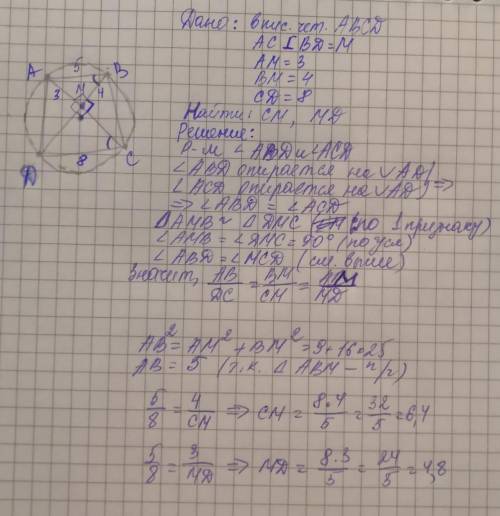 Дано: впис. чет. ABCD
AC ⊥ BD = M
AM = 3
BM = 4
CD = 8
Найти: CM, MD
Решение:
Р-м ∠ABD и ∠ACD
∠ABD опирается на ◡AD
∠ACD опирается на ◡AD ⇒
⇒ ∠ABD = ∠ACD
ΔAMB ~ ΔDMC (по 1 признаку)
∠AMB = ∠DMC = 90° (по усл)
∠ABD = ∠MCD (см. выше)
Значит, AB/DC = BM/CM = AM/MD
AB² = AM² + BM² = 9+16=25
AB = 5 (т.к. Δ ABM - п/г)
5/8 = 4/CM ⇒ CM = 8·4/5 = 32/5 = 6,4
5/8 = 3/MD ⇒ MD = 8·3/5 = 24/5 = 4,8
A 5 B
3 M 4
8 C
D